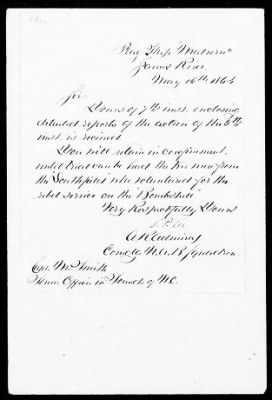 Flag Ship "Malvern"
James River
May 16th 1864
Sir
Yours of 7th inst. enclosing
detailed reports of the action of the 5th
inst. is received
You will retain in confinement,
until trial can be had the men from
the "Southfield" who volunteered for the
rebel service on the "Bombshell"
Very Respectfully Yours
S. P. Lee
A R Admiral
Comdg N. A. B. Squadron
Capt. M. Smith
Senior Officer in Sounds of N.C.